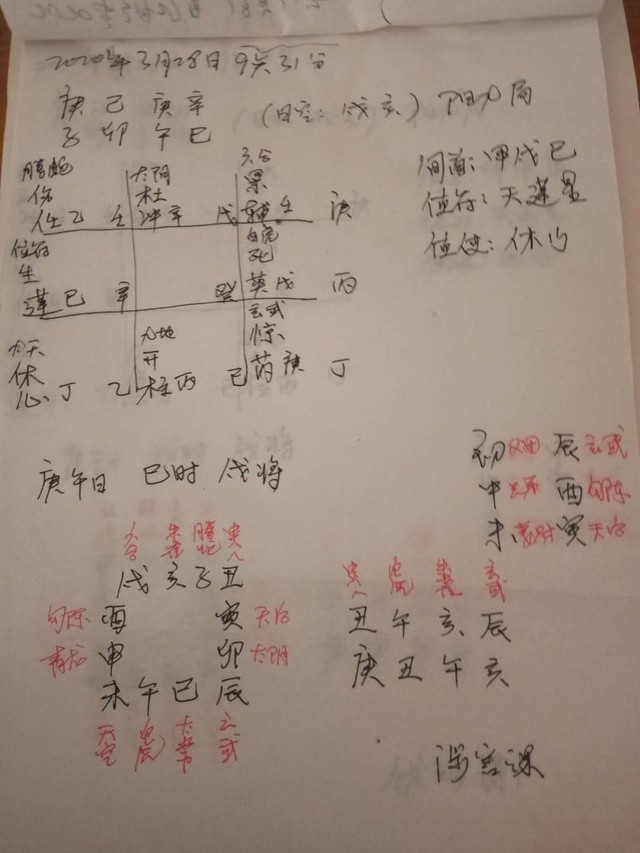 2020年3月28日 9点31分
庚 己 庚 辛
子 卯 午 巳
(日空:戌亥) 阳九局
旬首:甲戌己
值符:天蓬星
值使:休门
螣蛇 太阴 六合
伤 杜 景
任乙 壬 冲辛 戊 辅壬 庚
值符 白虎
生 死
蓬己 辛 癸 英戊 丙
九天 九地 玄武
休 开 惊
心丁 乙 柱丙 己 芮庚 丁
庚午日 巳时 戌将
初 父母 辰 玄武
中 兄弟 酉 勾陈
末 妻财 寅 天后
六合 朱雀 螣蛇 贵人
戌 亥 子 丑
勾陈 酉 寅 天后
青龙 申 卯 太阴
未 午 巳 辰
天空 白虎 太常 玄武
贵人 白虎 朱雀 玄武
丑 午 亥 辰
庚 丑 午 亥
涉害课